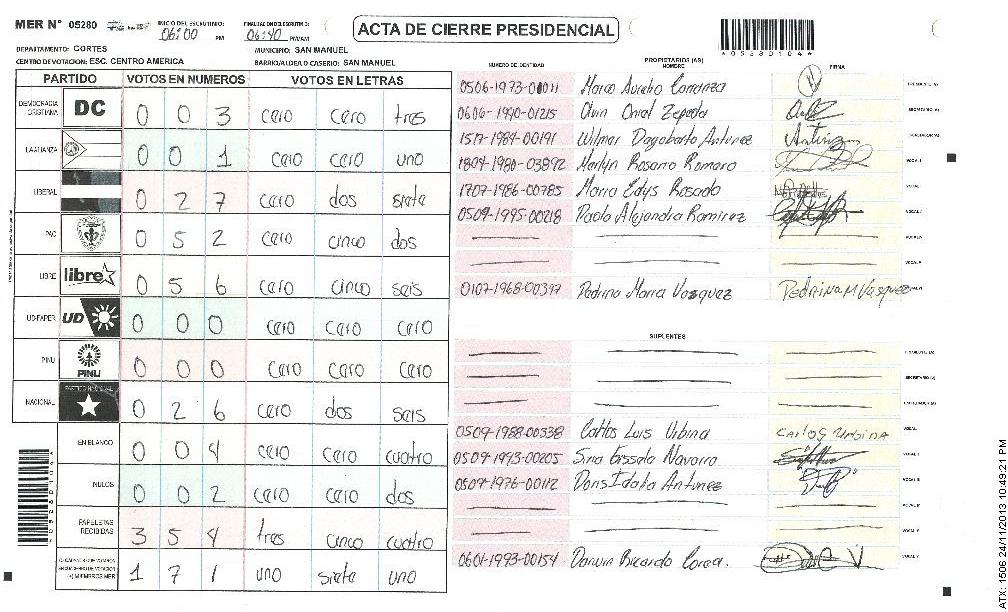 MER N° 05280
INICIO DEL ESCRUTINIO:
06:00 PM
FINALIZACION DE ESCRUTINIO:
06:40 PM/AM
ACTA DE CIERRE PRESIDENCIAL
*05280104*
DEPARTAMENTO: CORTES
MUNICIPIO: SAN MANUEL
CENTRO DE VOTACION: ESC. CENTRO AMERICA
BARRIO/ALDEA O CASERIO: SAN MANUEL
PARTIDO VOTOS EN NUMEROS VOTOS EN LETRAS
DEMOCRACIA CRISTIANA DC 0 0 3 cero cero tres
LA ALIANZA 0 0 1 cero cero uno
LIBERAL 0 2 7 cero dos siete
PAC 0 5 2 cero cinco dos
LIBRE libre 0 5 6 cero cinco seis
UD-FAPER UD 0 0 0 cero cero cero
PINU PINU 0 0 0 cero cero cero
NACIONAL PARTIDO NACIONAL 0 2 6 cero dos seis
EN BLANCO 0 0 4 cero cero cuatro
NULOS 0 0 2 cero cero dos
PAPELETAS RECIBIDAS 3 5 4 tres cinco cuatro
1 7 1 uno siete uno
NUMERO DE IDENTIDAD PROPIETARIOS (AS) NOMBRE FIRMA
0506-1973-00011 Marco Aurelio Carranza PRESIDENTE (A)
0606-1990-01215 Olvin Oniel Zepeda SECRETARIO (A)
1517-1984-00191 Wilmer Dagoberto Antunez Antunez ESCRUTADOR (A)
1804-1980-03892 Merlyn Rosario Romero VOCAL I
1707-1986-00785 Maria Edys Rosado VOCAL
0509-1995-00218 Paola Alejandra Ramirez VOCAL
VOCAL
VOCAL
0107-1968-00397 Pedrina Maria Vasquez Pedrina M Vasquez
SUPLENTES
PRESIDENTE (A)
SECRETARIO (A)
ESCRUTADOR (A)
0509-1988-00338 Carlos Luis Urbina Carlos Urbina VOCAL
0509-1993-00205 Sina Gissela Navarro VOCAL
0509-1976-00112 Doris Idalia Antunez VOCAL
VOCAL
VOCAL
0601-1993-00154 Darwin Ricardo Corea. VOCAL
ATX: 1506 24/11/2013 10:49:21 PM